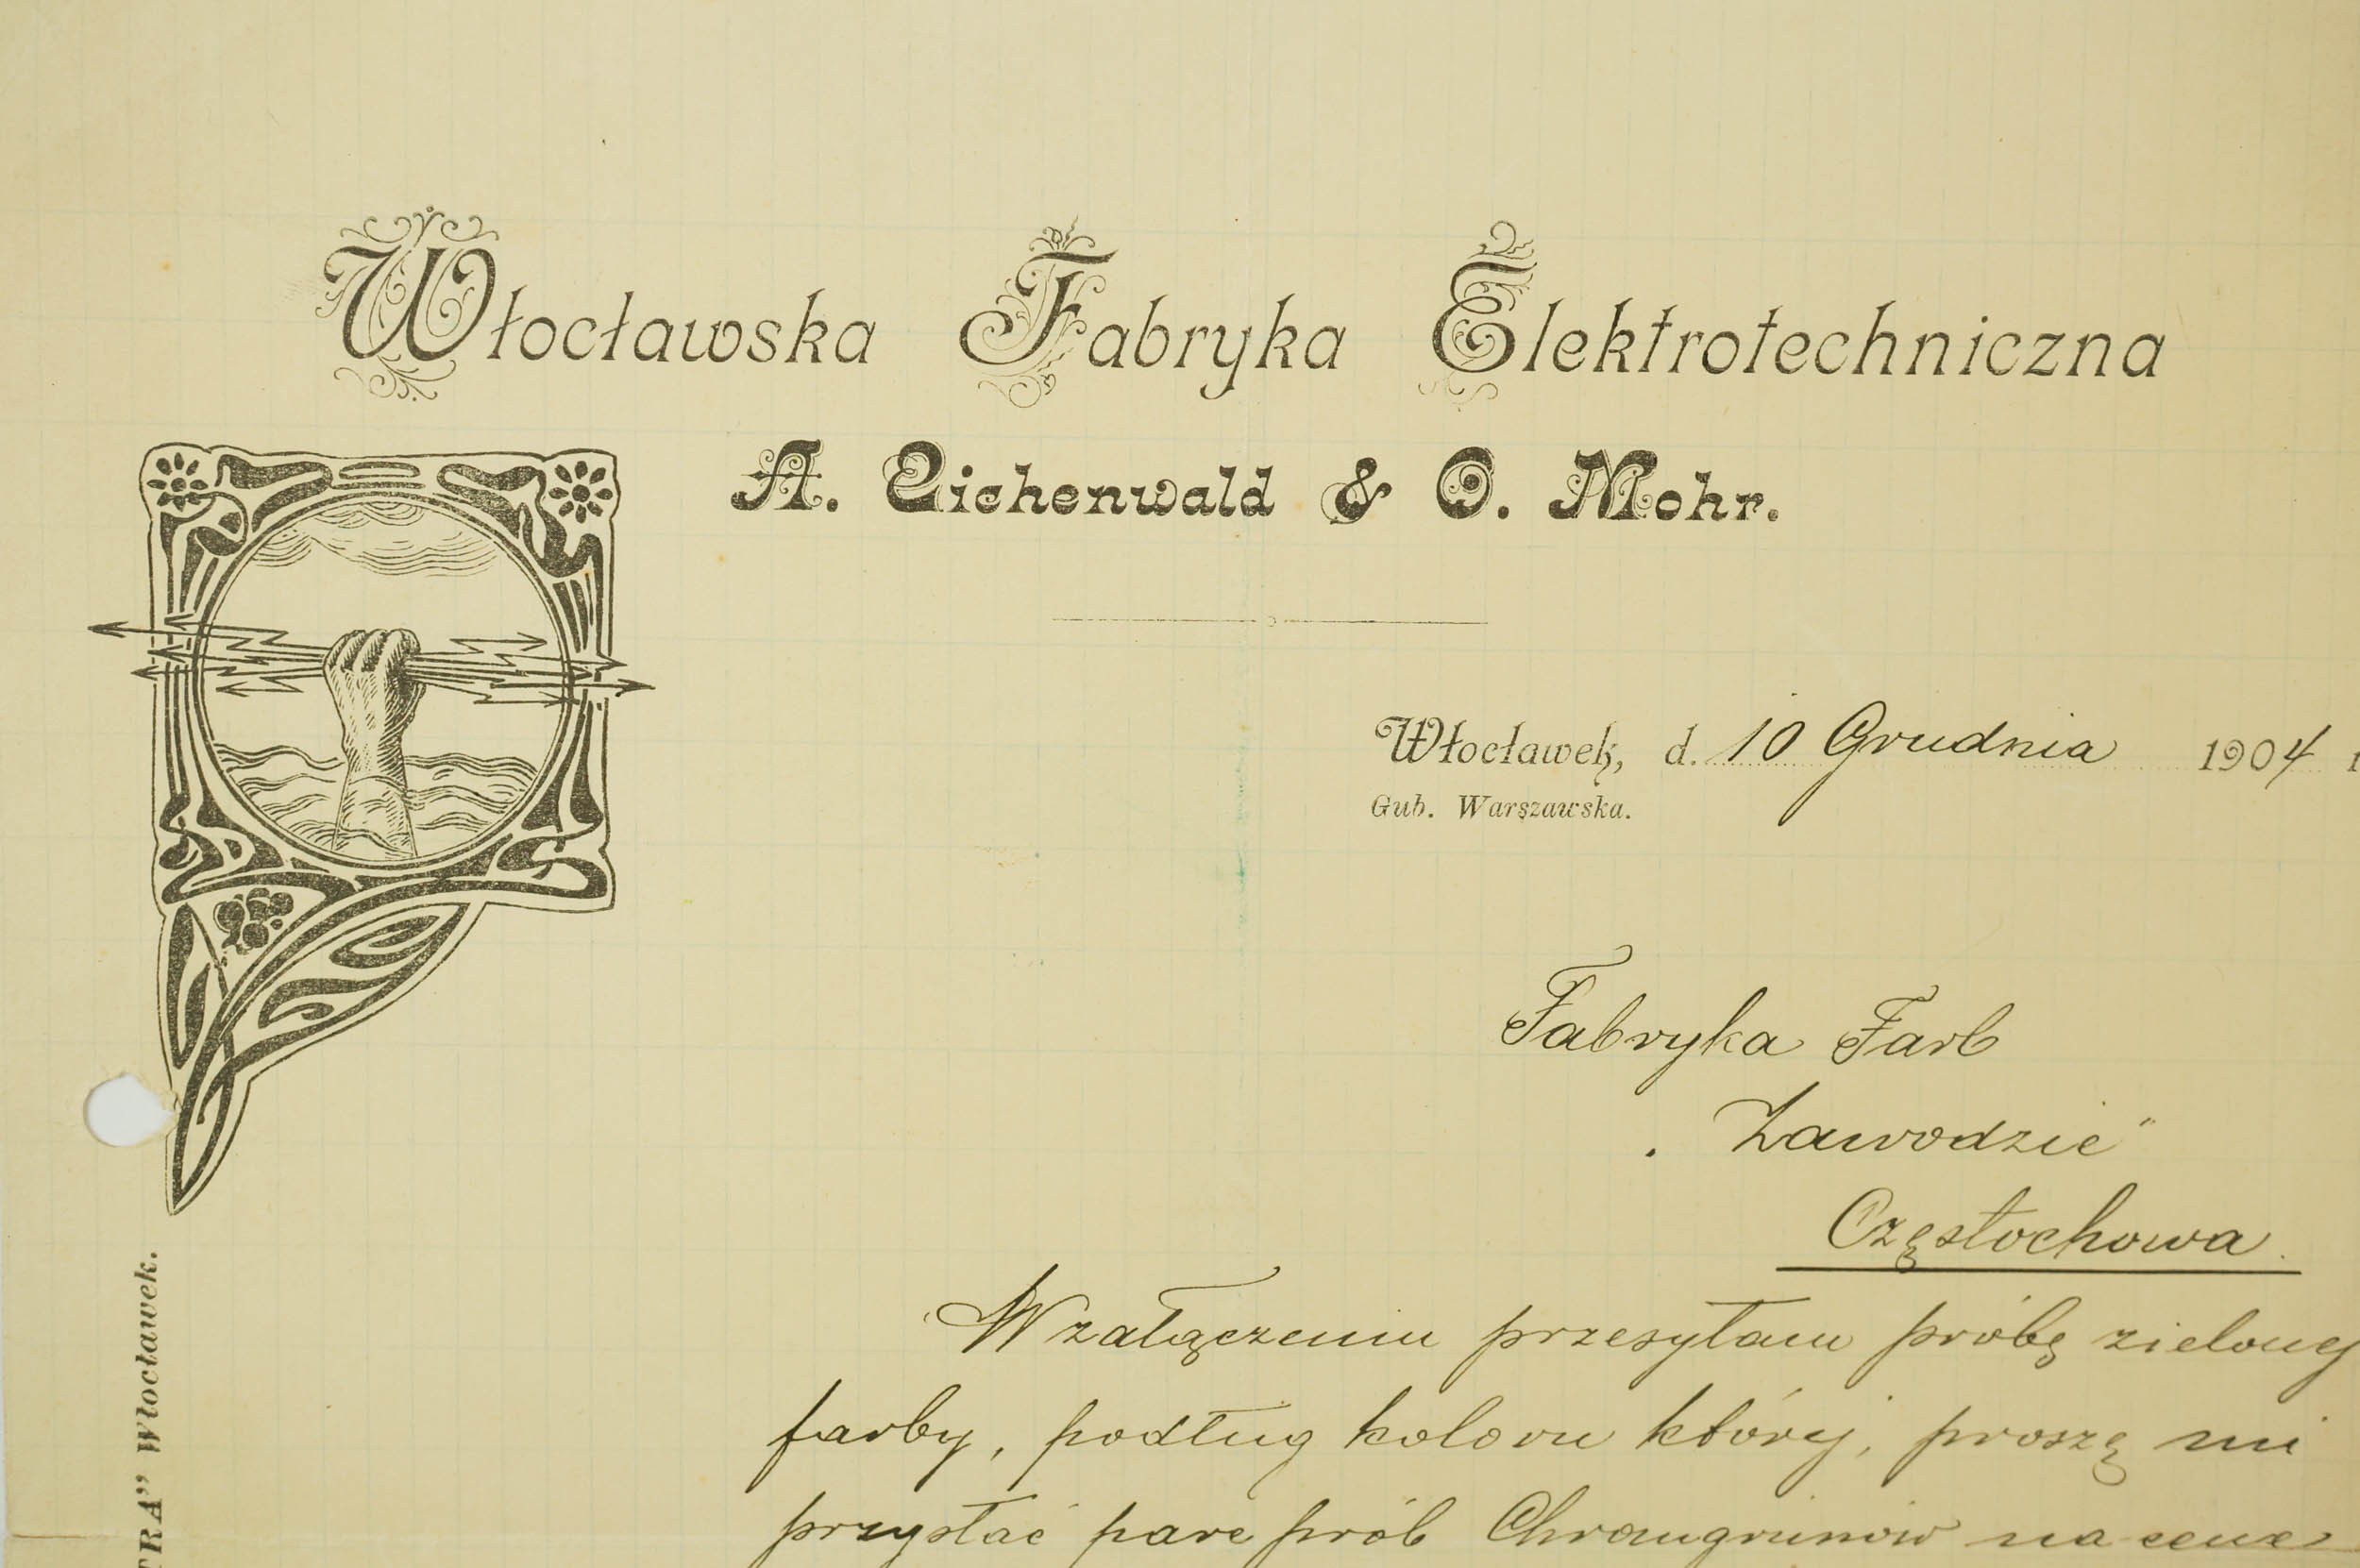 Włocławska Fabryka Elektrotechniczna
A. Eichenwald & O. Mohr.
Włocławek, d. 10 Grudnia 1904 r
Gub. Warszawska.
Fabryka Farb
„Zawodzie"
Częstochowa.
W załączeniu przesyłam próbę zielonej
farby, podług koloru której, proszę mi
przysłać parę prób Chromgrünów na cenę
TRA" Włocławek.